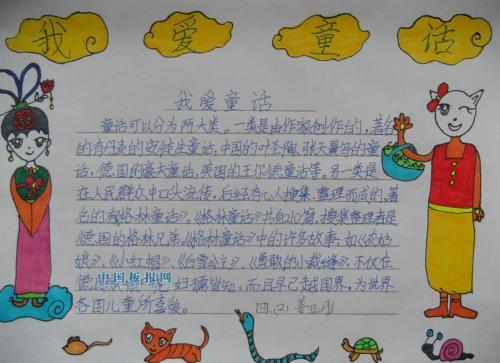 我 爱 童 话
我爱童话
童话可以分为两大类。一类是由作家创作的,著名
的有丹麦的安徒生童话,中国的叶圣陶、张天翼写的童
话,德国的豪夫童话,英国的王尔德童话等。另一类是
在人民群众中口头流传,后经有心人搜集、整理而成的,著
名的有《格林童话》。《格林童话》共有210篇,搜集整理者是
德国的格林兄弟。《格林童话》中的许多故事,如《灰姑
娘》、《小红帽》、《白雪公主》、《勇敢的小裁缝》,不仅在
德国 妇孺皆知,而且早已越国界,为世界
各国儿童所喜爱。
中国板报网
四.(2)